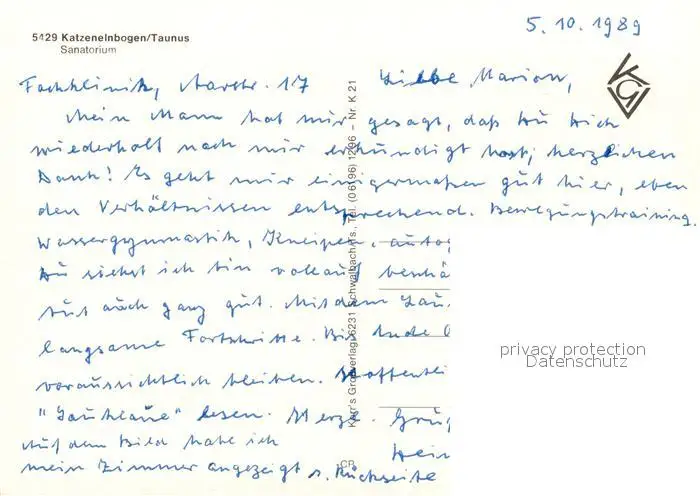 5.10.1989
5429 Katzenelnbogen/Taunus
Sanatorium
Fachklinik, Aarstr. 17 Liebe Marion,
Mein Mann hat mir gesagt, daß Du Dich
wiederholt nach mir erkundigt hast, herzlichen
Dank! Es geht mir einigermaßen gut hier, eben
den Verhältnissen entsprechend. Bewegungstraining,
Wassergymnastik, Kneipen, auto
Du siehst ich bin vollauf
tut auch ganz gut. Mit dem
langsame Fortschritte. Bis Ende
voraussichtlich bleiben. Hoffentli
lesen. Herzl. Grüß
Auf dem Bild habe ich
mein Zimmer angezeigt s. Rückseite
Karl's Großverlag, 6231 Schwalbach/Ts., Tel. (06196) 1296 – Nr. K 21
CP
privacy protection
Datenschutz